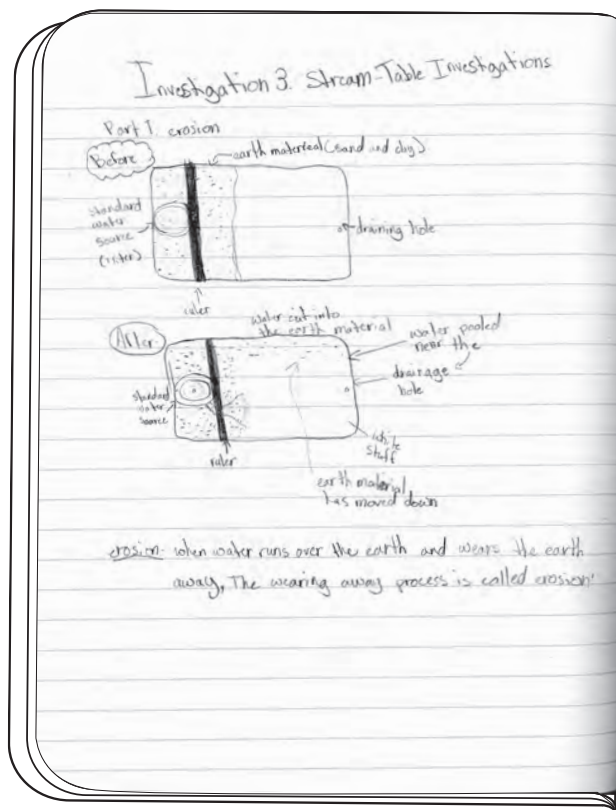 Investigation 3. Stream-Table Investigations
Part 1. erosion
Before
earth material (sand and clay)
standard
water
source
(liter)
draining hole
ruler
After
water cut into
the earth material
water pooled
near the
drainage
hole
standard
water
source
ruler
white
stuff
earth material
has moved down
erosion- when water runs over the earth and wears the earth
away, The wearing away process is called erosion